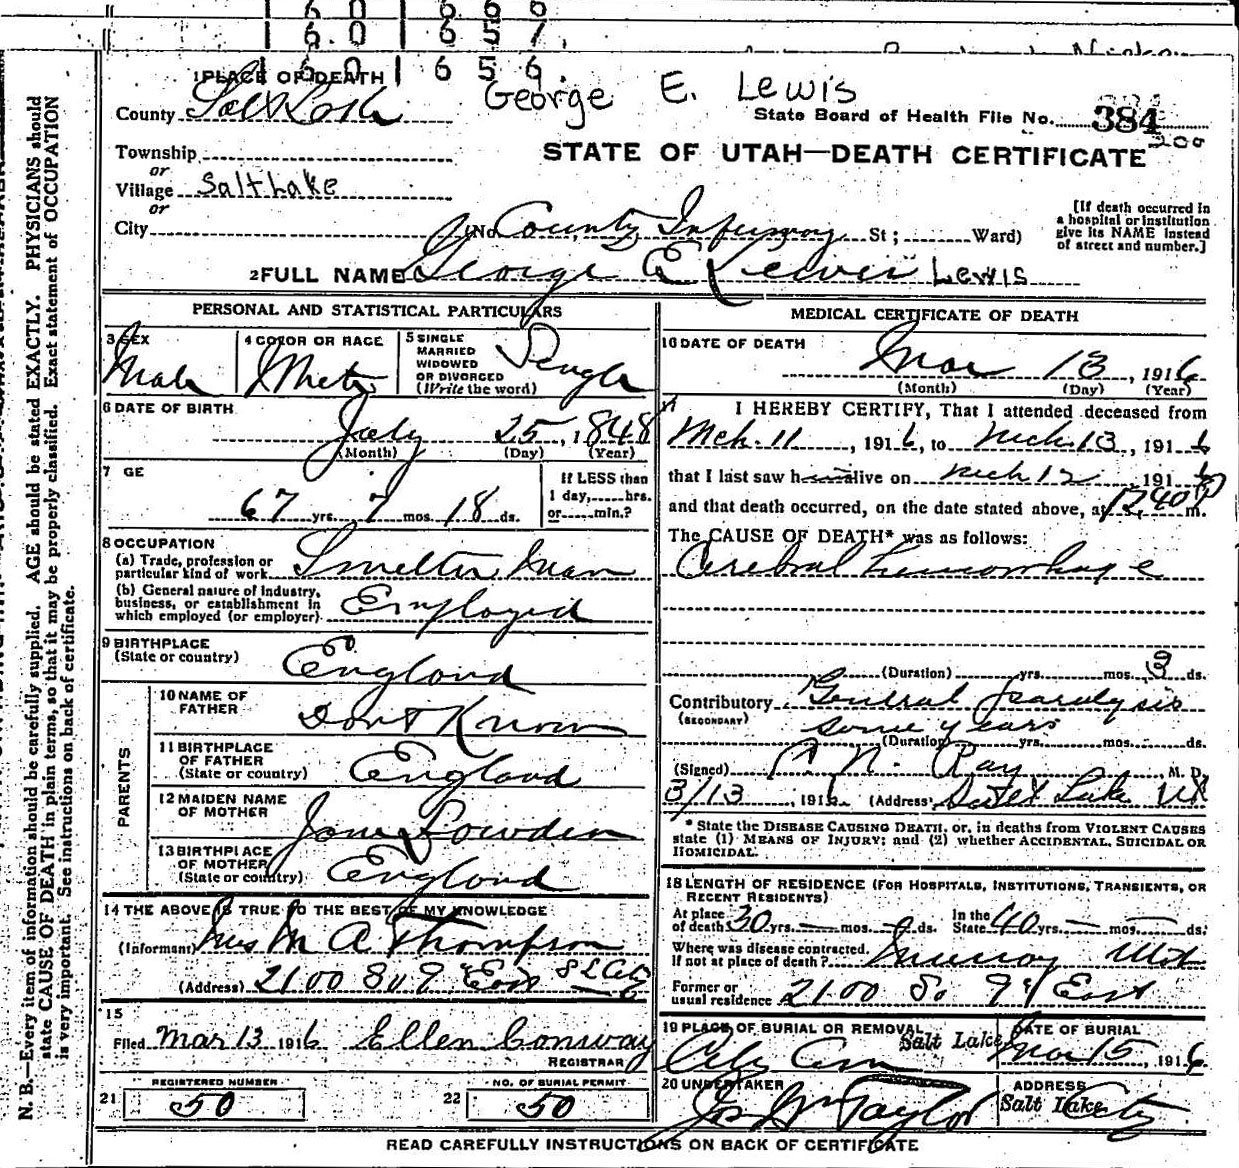 6 0 6 6 6
6 0 6 5 7.
6 0 6 5 6.
1 PLACE OF DEATH
George E. Lewis
County Salt Lake
State Board of Health File No. 384
200
STATE OF UTAH—DEATH CERTIFICATE
Township
or
Village Salt Lake
or
City
(No. County Infirmary St; Ward)
[If death occurred in
a hospital or institution
give its NAME instead
of street and number.]
2 FULL NAME George E Lewis LEWIS
PERSONAL AND STATISTICAL PARTICULARS
3 SEX
Male
4 COLOR OR RACE
White
5 SINGLE
MARRIED
WIDOWED
OR DIVORCED
(Write the word)
Single
6 DATE OF BIRTH
July 25, 1848
(Month) (Day) (Year)
7 GE
67 yrs. 7 mos. 18 ds.
If LESS than
1 day, hrs.
or min.?
8 OCCUPATION
(a) Trade, profession or
particular kind of work Smelter Man
(b) General nature of industry,
business, or establishment in
which employed (or employer) Employed
9 BIRTHPLACE
(State or country)
England
PARENTS
10 NAME OF
FATHER
Dont Know
11 BIRTHPLACE
OF FATHER
(State or country)
England
12 MAIDEN NAME
OF MOTHER
Jane Bowden
13 BIRTHPLACE
OF MOTHER
(State or country)
England
14 THE ABOVE IS TRUE TO THE BEST OF MY KNOWLEDGE
(Informant) Mrs M A Thompson
(Address) 2100 So 9 East S L City
15
Filed Mar 13 1916 Ellen Conway
REGISTRAR
REGISTERED NUMBER
21 50
NO. OF BURIAL PERMIT
22 50
MEDICAL CERTIFICATE OF DEATH
16 DATE OF DEATH
Mar 13, 1916
(Month) (Day) (Year)
17 I HEREBY CERTIFY, That I attended deceased from
Mch. 11, 1916, to Mch. 13, 1916
that I last saw h alive on Mch 12 1916
and that death occurred, on the date stated above, at 12 40 P m.
The CAUSE OF DEATH* was as follows:
Cerebral hemorrhage
(Duration) yrs. mos. 3 ds.
Contributory General paralysis
(SECONDARY)
some years
(Duration) yrs. mos. ds.
(Signed) N. Ray, M. D.
3/13, 1916 (Address) Salt Lake Ut
* State the DISEASE CAUSING DEATH, or, in deaths from VIOLENT CAUSES
state (1) MEANS OF INJURY; and (2) whether ACCIDENTAL, SUICIDAL OR
HOMICIDAL.
18 LENGTH OF RESIDENCE (FOR HOSPITALS, INSTITUTIONS, TRANSIENTS, OR
RECENT RESIDENTS)
At place
of death 30 yrs. — mos. ds.
In the
State 40 yrs. — mos. — ds.
Where was disease contracted,
If not at place of death? Murray Utah
Former or
usual residence 2100 So 9th East
19 PLACE OF BURIAL OR REMOVAL
Salt Lake
City Cem
DATE OF BURIAL
Mar 15, 1916
20 UNDERTAKER
Jos Wm Taylor
ADDRESS
Salt Lake City
READ CAREFULLY INSTRUCTIONS ON BACK OF CERTIFICATE
N. B.—Every item of information should be carefully supplied. AGE should be stated EXACTLY. PHYSICIANS should
state CAUSE OF DEATH in plain terms, so that it may be properly classified. Exact statement of OCCUPATION
is very important. See instructions on back of certificate.